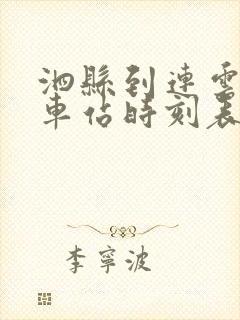 泗縣到連雲
車站時刻表
李寧波